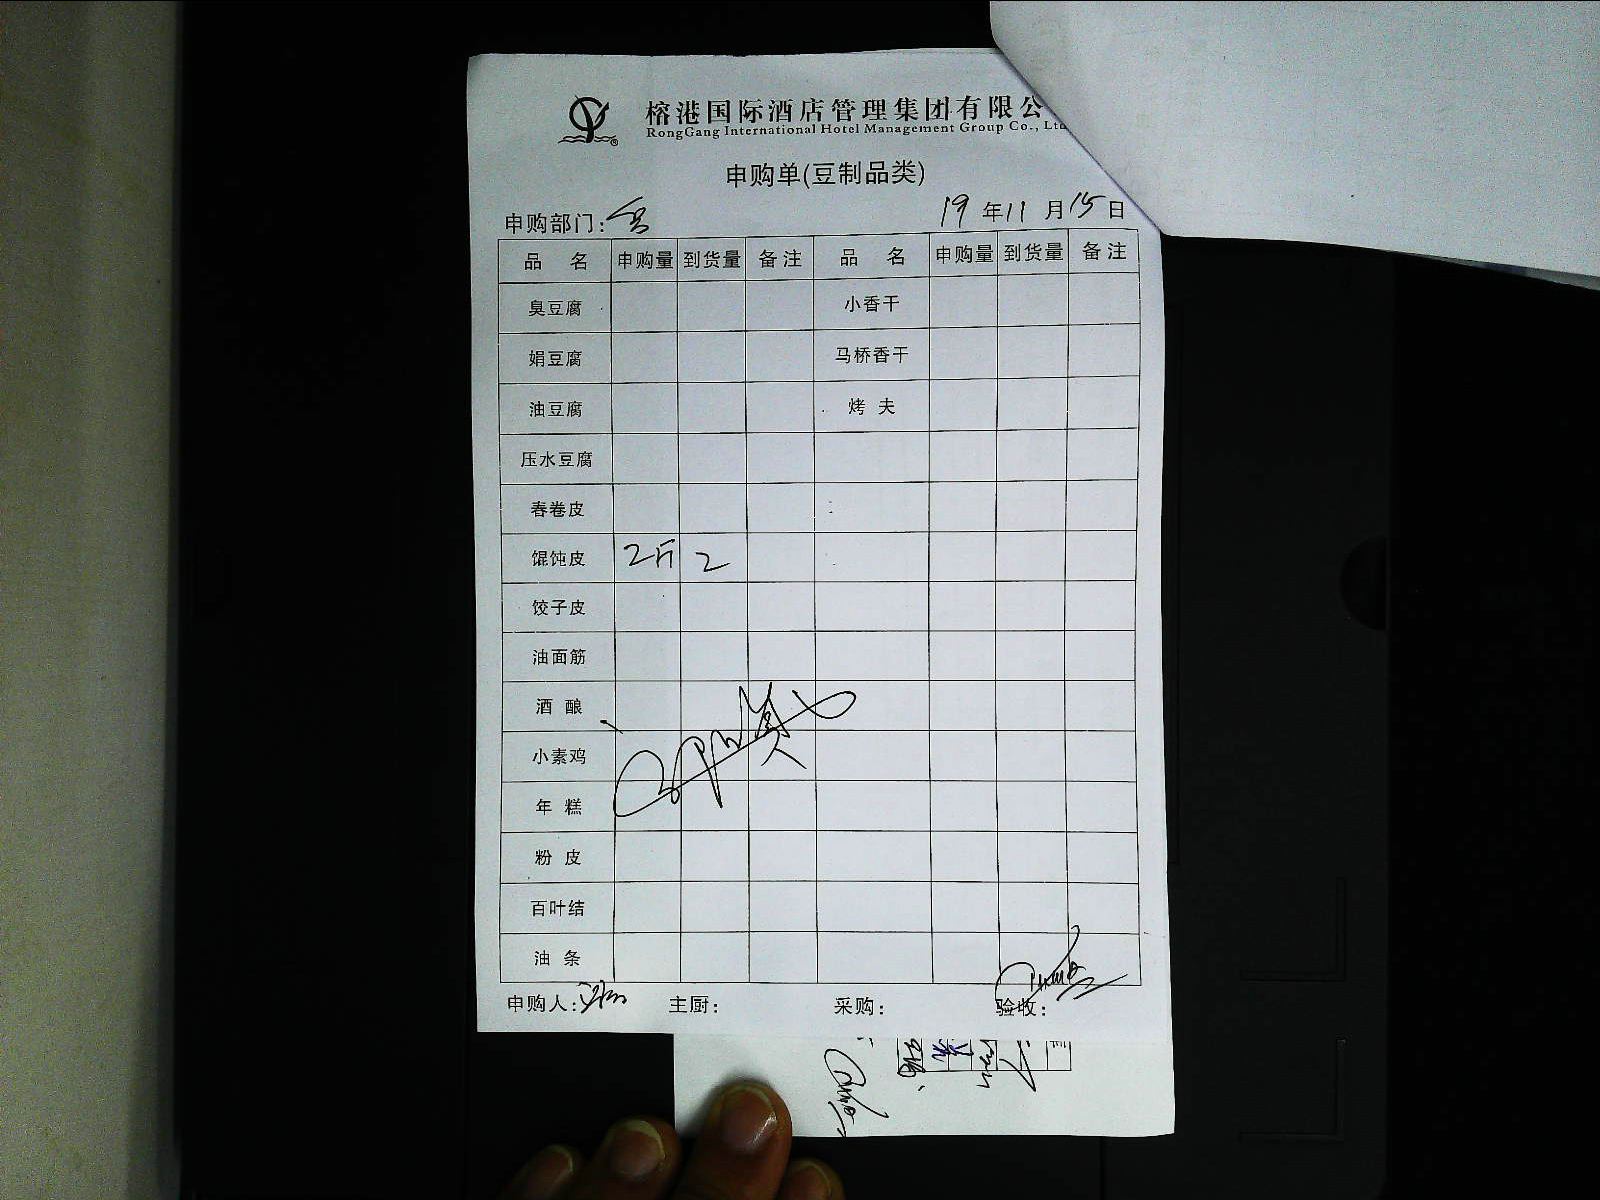 榕港国际酒店管理集团有限公
RongGang International Hotel Management Group Co., Ltd
申购单(豆制品类)
申购部门: 19 年 11 月 15 日
品 名 申购量 到货量 备注 品 名 申购量 到货量 备注
臭豆腐 小香干
娟豆腐 马桥香干
油豆腐 烤 夫
压水豆腐
春卷皮
馄饨皮 2斤 2
饺子皮
油面筋
酒 酿
小素鸡
年 糕
粉 皮
百叶结
油 条
申购人: 主厨: 采购: 验收: